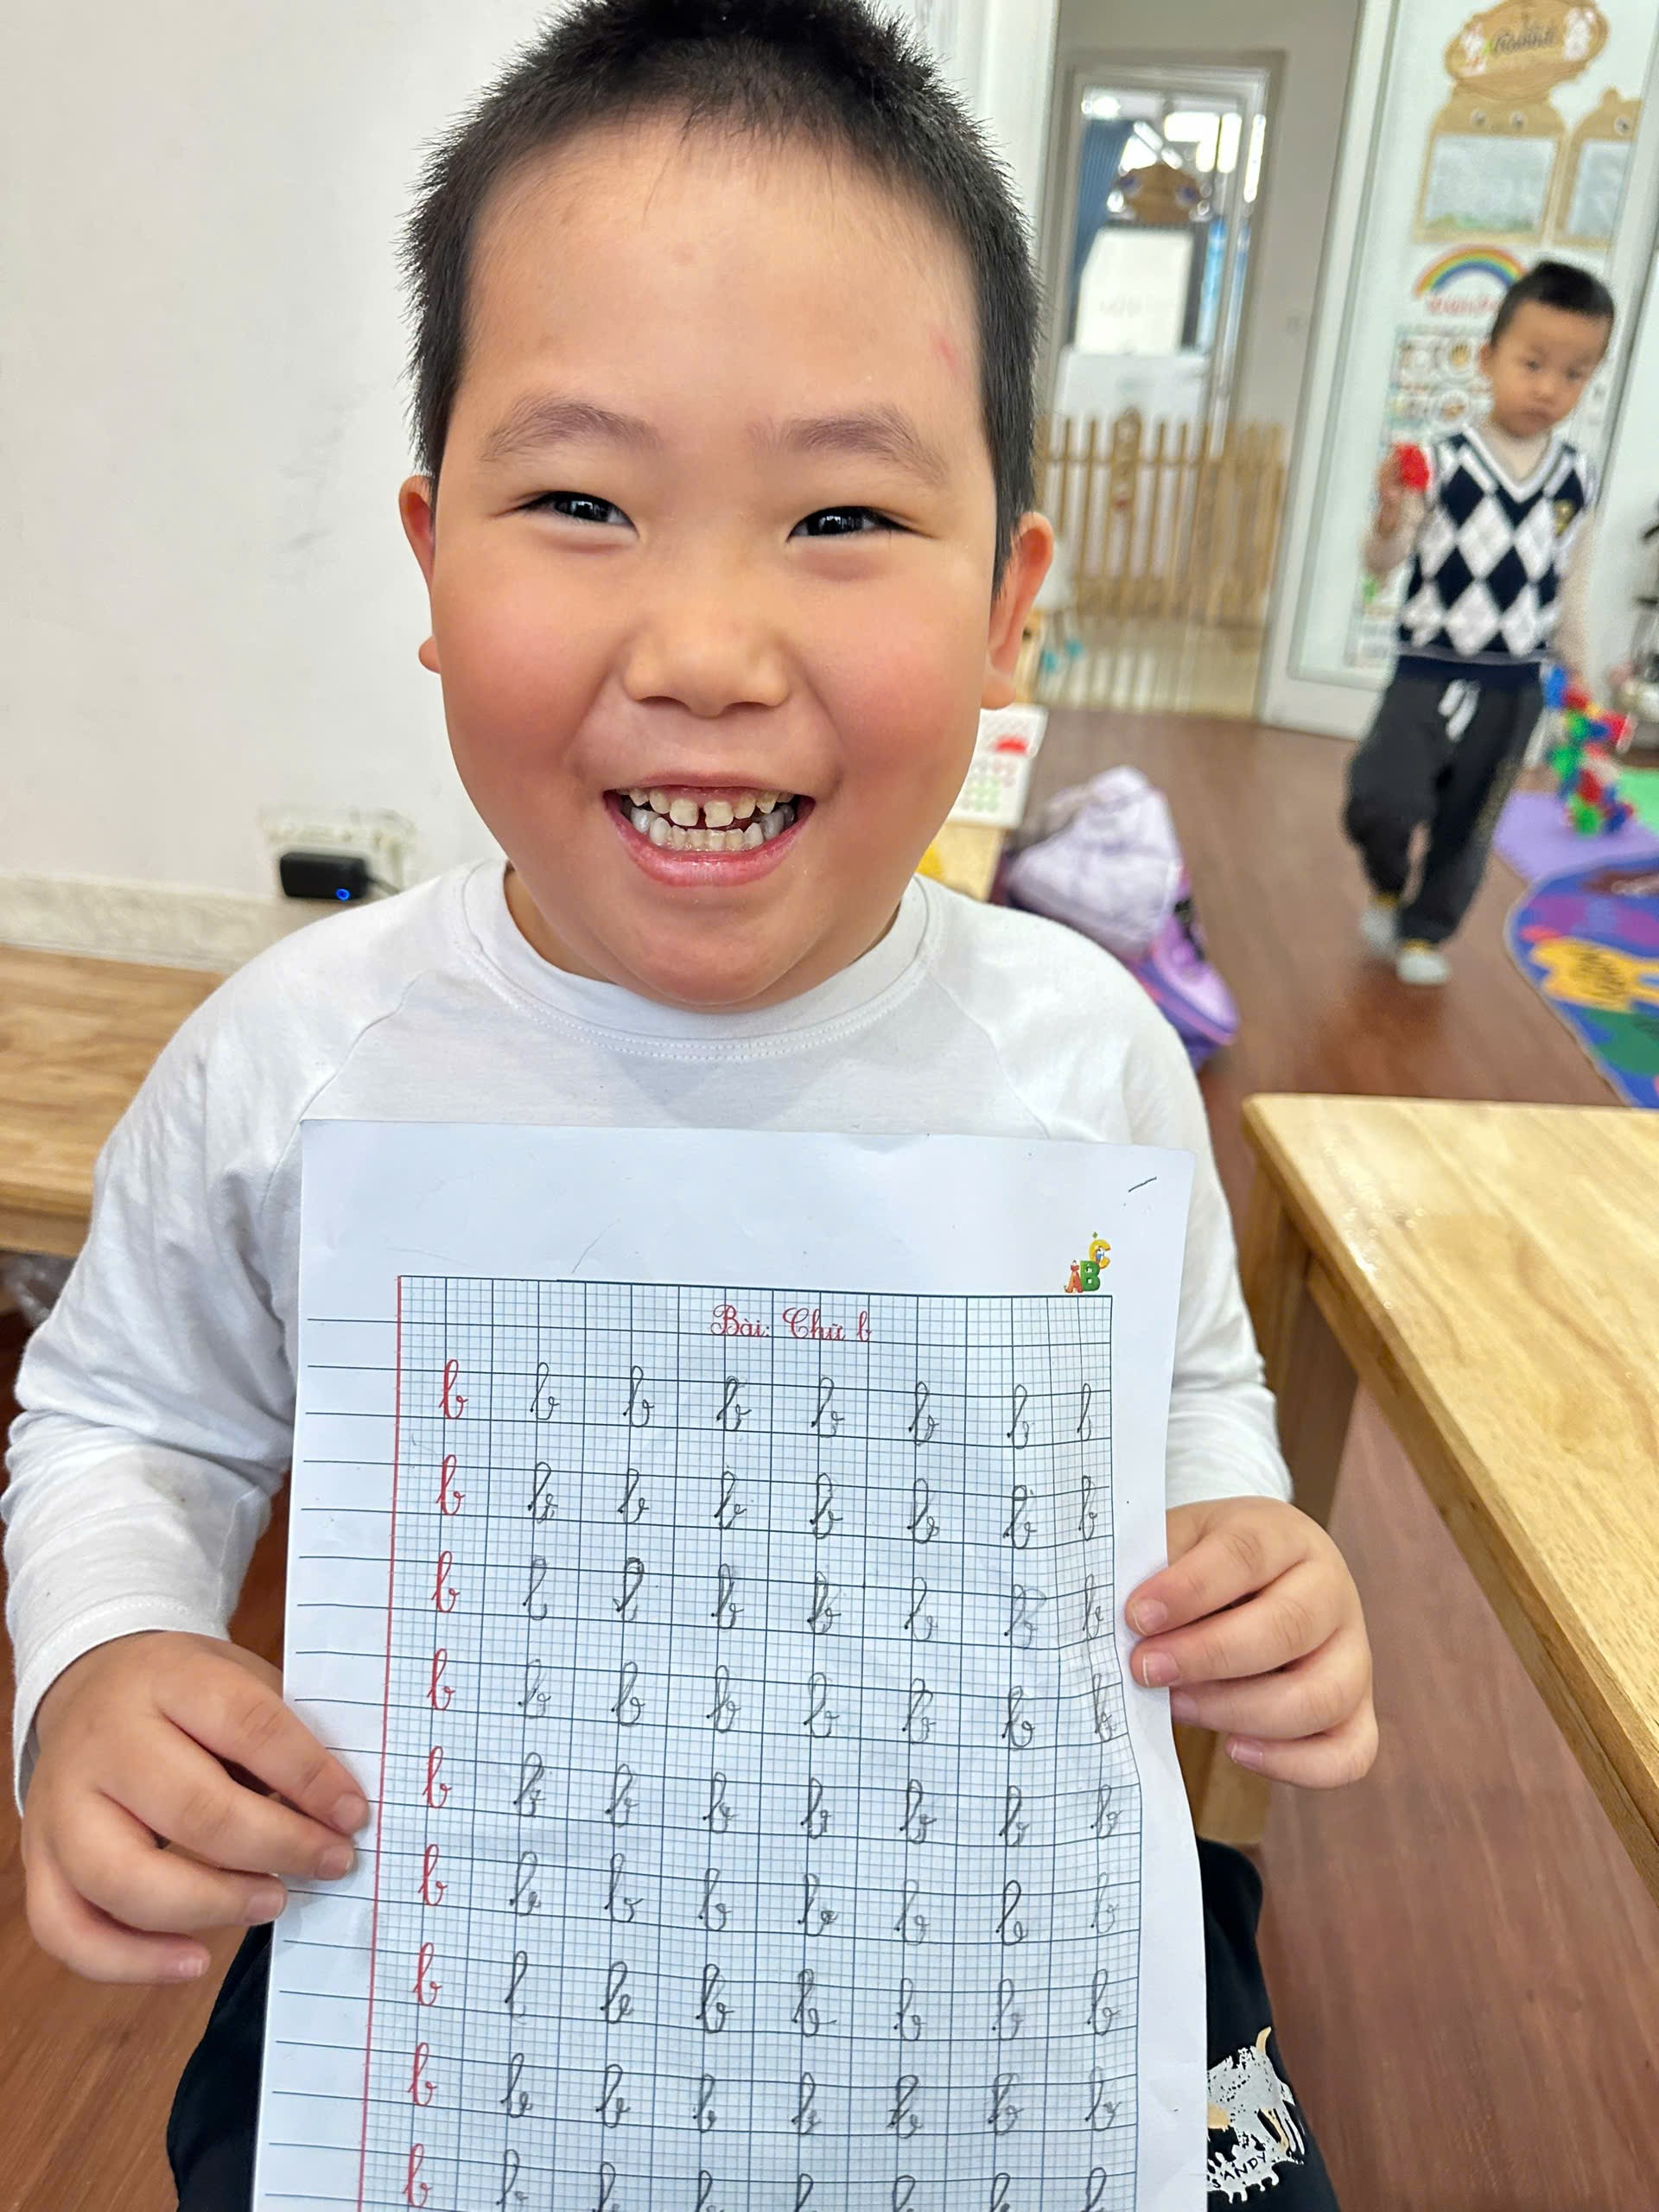 ABC
Bài: Chữ b
b b b b b b b b
b b b b b b b b
b b b b b b b b
b b b b b b b b
b b b b b b b b
b b b b b b b b
b b b b b b b b
b b b b b b b b
b b b b b b b b
ANDY